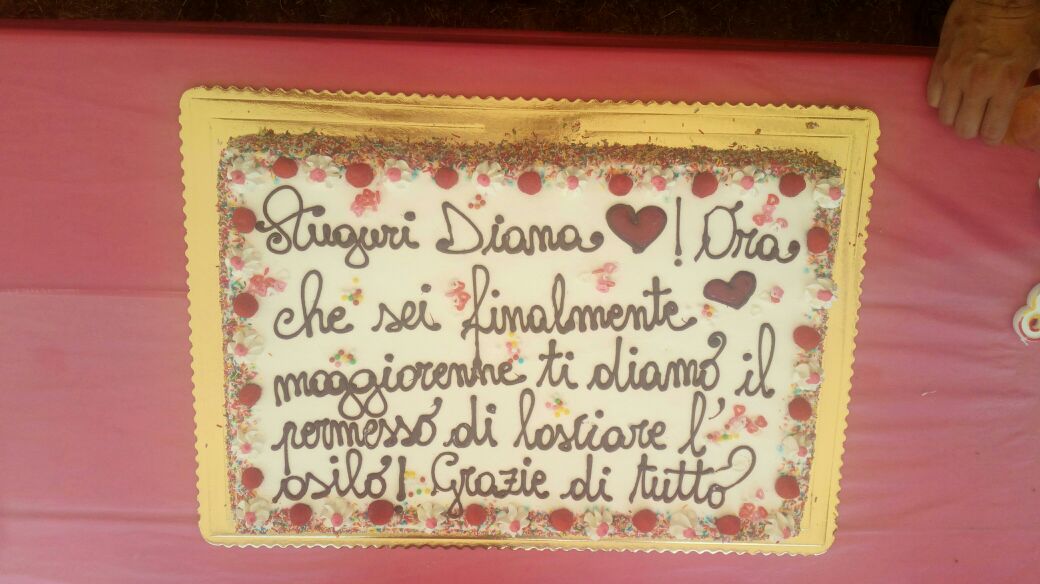 Auguri Diana ! Ora
che sei finalmente
maggiorenne ti diamo il
permesso di lasciare l'
asilo! Grazie di tutto